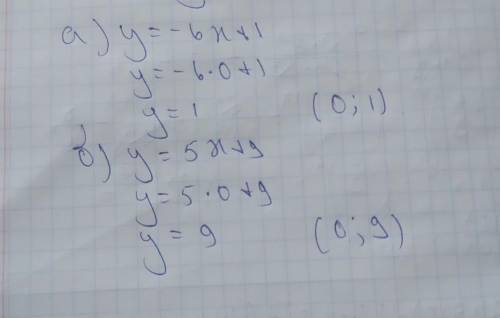 а) y = -6x+1
y = -6·0+1
y = 1 (0; 1)
б) y = 5x+9
y = 5·0+9
y = 9 (0; 9)